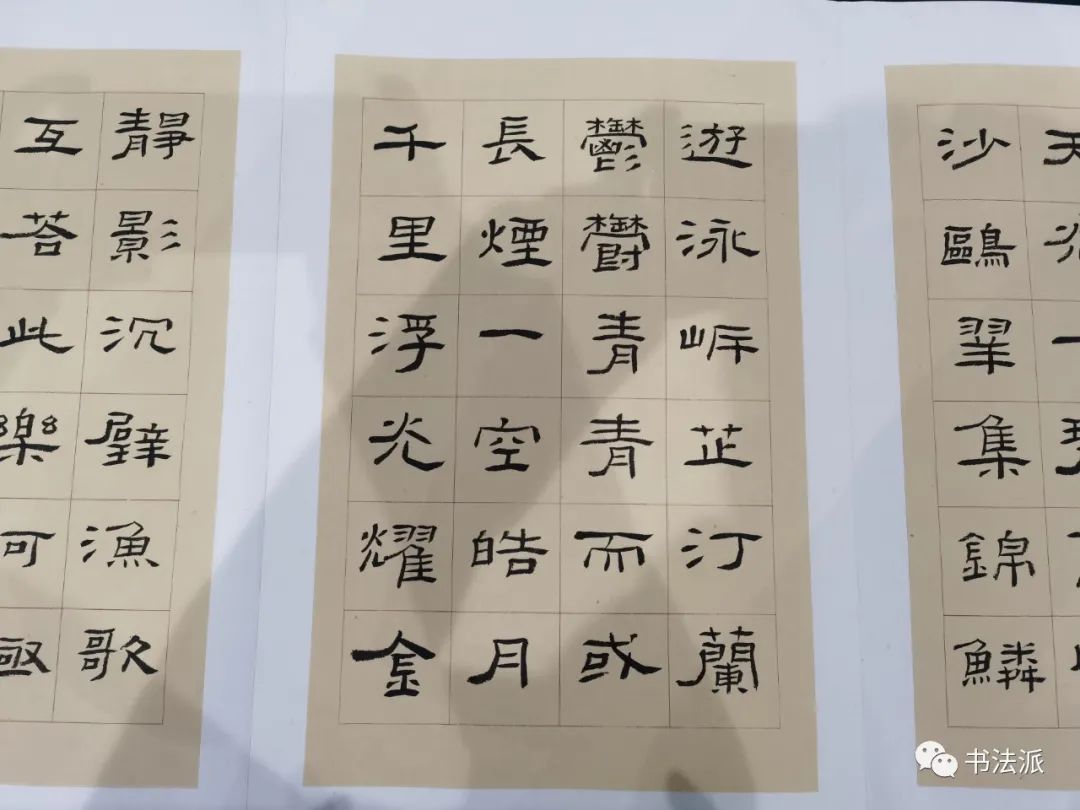 天光一
沙鷗翔集錦鱗
遊泳岸芷汀蘭
鬱鬱青青而或
長煙一空皓月
千里浮光耀金
靜影沉璧漁歌
互荅此樂何極
书法派